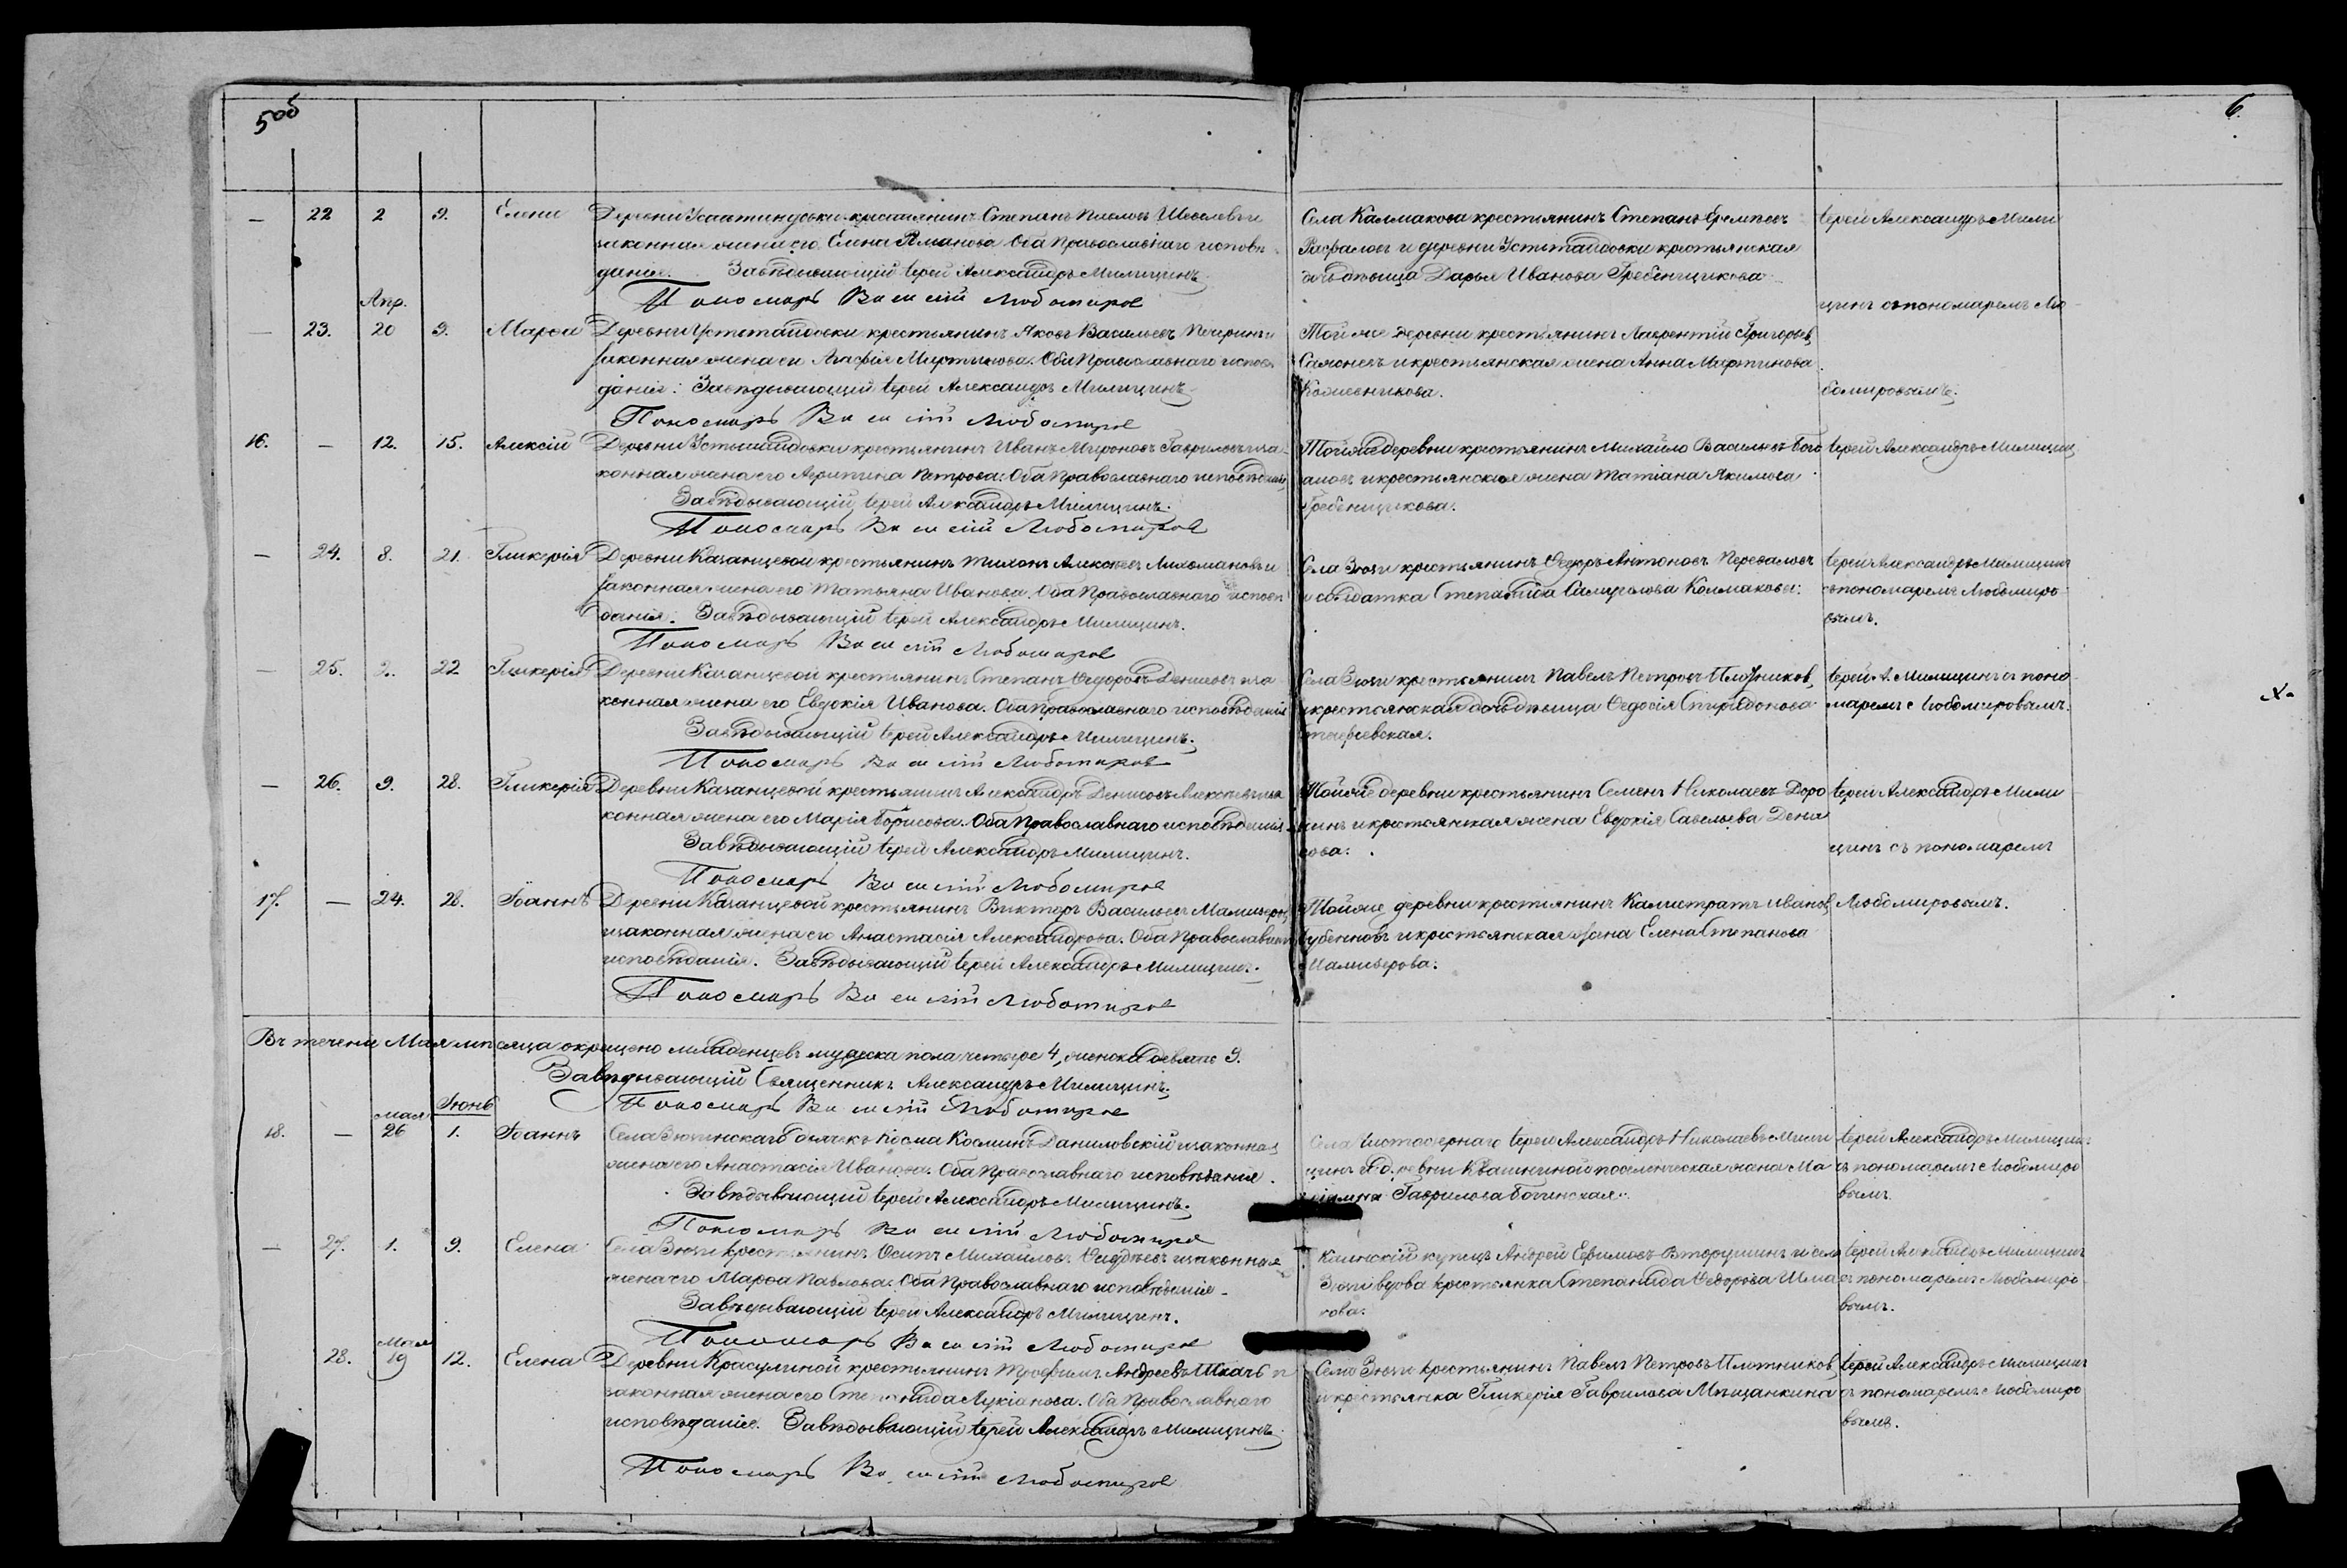 5об
6.
— 22 2 9. Елена Деревни крестьянинъ Степанъ Павловъ Шевелевъ и
законная жена его Елена Иванова Оба Православнаго исповѣ-
данія. Завѣдывающій Іерей Александръ Милицинъ.
Пономарь Василій Любомировъ
Села Калмакова крестьянинъ Степанъ Еремѣевъ
и деревни крестьянская
дочь дѣвица Дарья Иванова Гребенщикова
Іерей Александръ Мили
цинъ съ пономаремъ Лю-
бомировымъ.
Апр.
— 23. 20 9. Марѳа Деревни крестьянинъ Яковъ Васильевъ и
законная жена его Агафія Мартинова. Оба Православнаго исповѣ
данія: Завѣдывающій Іерей Александръ Милицинъ
Пономарь Василій Любомировъ
Той же деревни крестьянинъ Лаврентій Григорьевъ
и крестьянская жена Анна Мартинова
16. — 12. 15. Алексій Деревни крестьянинъ Иванъ Мироновъ Гавриловъ и за-
конная жена его Агрипина Петрова: Оба Православнаго исповѣданія
Завѣдывающій Іерей Александръ Милицинъ.
Пономарь Василій Любомировъ
Той же деревни крестьянинъ Михайло Васильевъ
и крестьянская жена Татіана Якимова
Гребенщикова.
Іерей Александръ Милицин
— 24. 8. 21. Гликерія Деревни Казанцевой крестьянинъ Тихонъ Алексѣевъ и
законная жена его Татьяна Иванова. Оба Православнаго исповѣ
данія. Завѣдывающій Іерей Александръ Милицинъ.
Пономарь Василій Любомировъ
Села Зюзи крестьянинъ Ѳедоръ Антоновъ Переваловъ
и солдатка Степанида Самуилова Колмакова:
Іерей Александръ Милицинъ
съ пономаремъ Любомиро-
вымъ.
— 25. 2. 22 Гликерія Деревни Казанцевой крестьянинъ Степанъ Ѳедоровъ Денисовъ и за-
конная жена его Евдокія Иванова. Оба православнаго исповѣданія
Завѣдывающій Іерей Александръ Милицинъ.
Пономарь Василій Любомировъ
Села Зюзи крестьянинъ Павелъ Петровъ Плотниковъ,
и крестьянская дочь дѣвица Ѳедосія Спиридонова
Іерей А. Милицинъ съ поно-
маремъ Любомировымъ.
— 26. 9. 28. Гликерія Деревни Казанцевой крестьянинъ Александръ Денисовъ Алексѣевъ и за
конная жена его Марія Борисова. Оба Православнаго исповѣданія.
Завѣдывающій Іерей Александръ Милицинъ.
Пономарь Василій Любомировъ
Той же деревни крестьянинъ Семенъ Николаевъ Доро
нинъ и крестьянская жена Евдокія Савельева Дени
сова:
Іерей Александръ Мили
цинъ съ пономаремъ
Любомировымъ.
17. — 24. 28. Іоаннъ Деревни Казанцевой крестьянинъ Викторъ Васильевъ
и законная жена его Анастасія Александрова. Оба Православнаго
исповѣданія. Завѣдывающій Іерей Александръ Милицинъ.
Пономарь Василій Любомировъ
Той же деревни крестьянинъ Калистратъ Ивановъ
и крестьянская жена Елена Степанова
Въ теченіе Мая мѣсяца окрещено младенцевъ мужеска пола четыре 4, женска девять 9.
Завѣдывающій Священникъ Александръ Милицинъ.
Пономарь Василій Любомировъ
мая Іюнь
18. — 26 1. Іоаннъ Села Зюзинскаго дьячекъ Косма Косминъ Даниловскій и законная
жена его Анастасія Иванова. Оба Православнаго исповѣданія.
Завѣдывающій Іерей Александръ Милицинъ.
Пономарь Василій Любомировъ
Села Чистоозернаго Іерей Александръ Николаевъ Мили
цинъ и деревни Квашниной поселенческая жена Ма
Гаврилова
Іерей Александръ Милицинъ
съ пономаремъ Любомиро
вымъ.
— 27. 1. 9. Елена Села Зюзи крестьянинъ Осипъ Михайловъ и законная
жена его Марѳа Павлова. Оба Православнаго исповѣданія.
Завѣдывающій Іерей Александръ Милицинъ.
Пономарь Василій Любомировъ
Каинскій купецъ Андрей Ефимовъ Вторушинъ и села
Зюзи вдова крестьянка Степанида Ѳедорова Шма
кова.
Іерей Александръ Милицинъ
съ пономаремъ Любомиро-
вымъ.
Мая
28. 19 12. Елена Деревни крестьянинъ Трофимъ Андреевъ и
законная жена его Степанида Лукіанова. Оба Православнаго
исповѣданія. Завѣдывающій Іерей Александръ Милицинъ.
Пономарь Василій Любомировъ
Села Зюзи крестьянинъ Павелъ Петровъ Плотниковъ,
и крестьянка Гликерія Гаврилова Мѣщанкина
Іерей Александръ Милицинъ
съ пономаремъ Любомиро
вымъ.